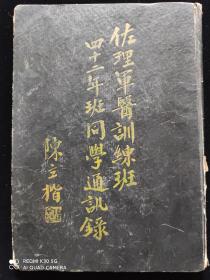 佐理軍醫訓練班
四十二年班同學通訊錄
陳立楷
REDMI K30 5G
AI QUAD CAMERA